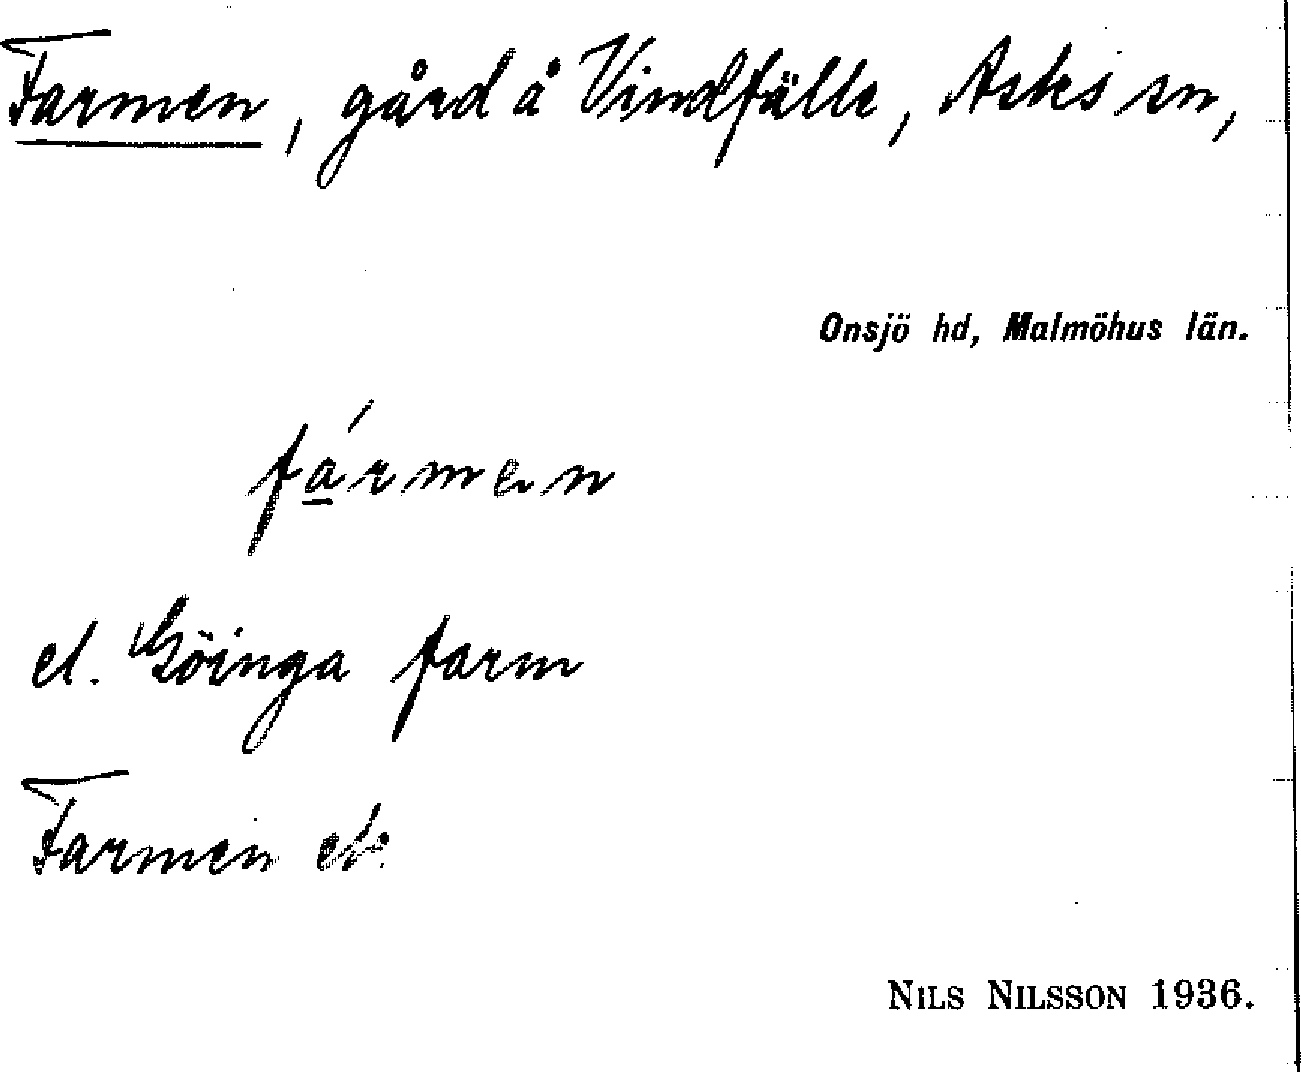 Farmen, gård å Vindfälle, Asks sn,
Onsjö hd, Malmöhus län.
fa̲´rmen
el. Göinga farm
Farmen ek.
NILS NILSSON 1936.